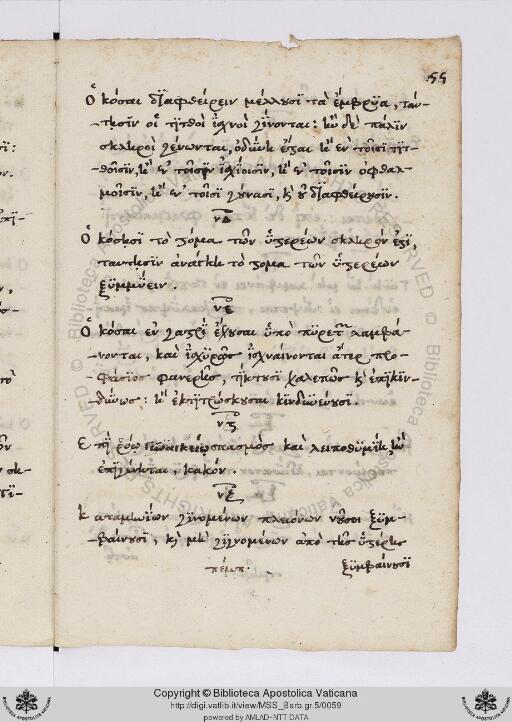 55
Ὁκόσαι διαφθείρειν μέλλουσι τὰ ἔμβρυα, ταύ-
τησιν οἱ τιτθοὶ ἰσχνοὶ γίνονται: ἢν δὲ πάλιν
σκληροὶ γένωνται, ὀδύνη ἔξει ἢ ἐν τοῖσι τιτ-
θοῖσιν, ἢ ἐν τοῖσιν ἰσχίοισιν, ἢ ἐν τοῖσιν ὀφθαλ-
μοῖσιν, ἢ ἐν τοῖσι γόνασι, κ οὐ διαφθείρουσιν.
νδ
Ὁκόσησι τὸ στόμα τῶν ὑστερέων σκληρόν ἐστι,
ταύτησιν ἀνάγκη τὸ στόμα τῶν ὑστερέων
ξυμμύειν.
νε
Ὁκόσαι ἐν γαστρὶ ἔχουσαι ὑπὸ πυρετῶν λαμβά-
νονται, καὶ ἰσχυρῶς ἰσχναίνονται ἄτερ προ-
φάσιος φανερῆς, τίκτουσι χαλεπῶς κ ἐπικιν-
δύνως: ἢ ἐκτιτρώσκουσαι κινδυνεύουσι.
νϛ
Ἐπὶ ῥόῳ γυναικείῳ σπασμὸς καὶ λειποθυμίη ἢν
ἐπιγένηται, κακόν.
νζ
Καταμηνίων γινομένων πλειόνων νοῦσοι ξυμ-
βαίνουσι, κ μὴ γινομένων ἀπὸ τῆς ὑστέρης
ξυμβαίνουσι
Copyright © Biblioteca Apostolica Vaticana
http://digi.vatlib.it/view/MSS_Barb.gr.5/0059
powered by AMLAD-NTT DATA